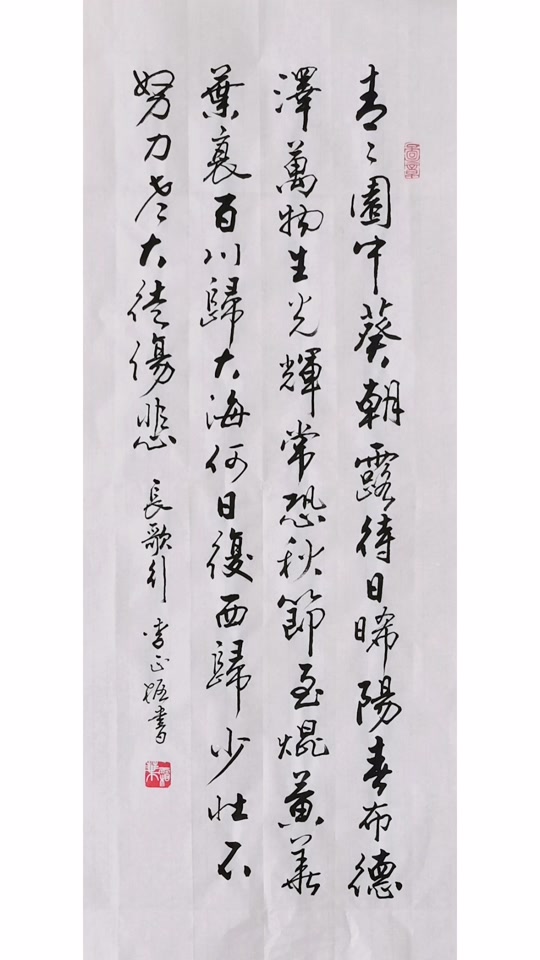 青々園中葵朝露待日晞陽春布德
澤萬物生光輝常恐秋節至焜黃華
葉衰百川歸大海何日復西歸少壯不
努力老大徒傷悲
長歌行 李正 書